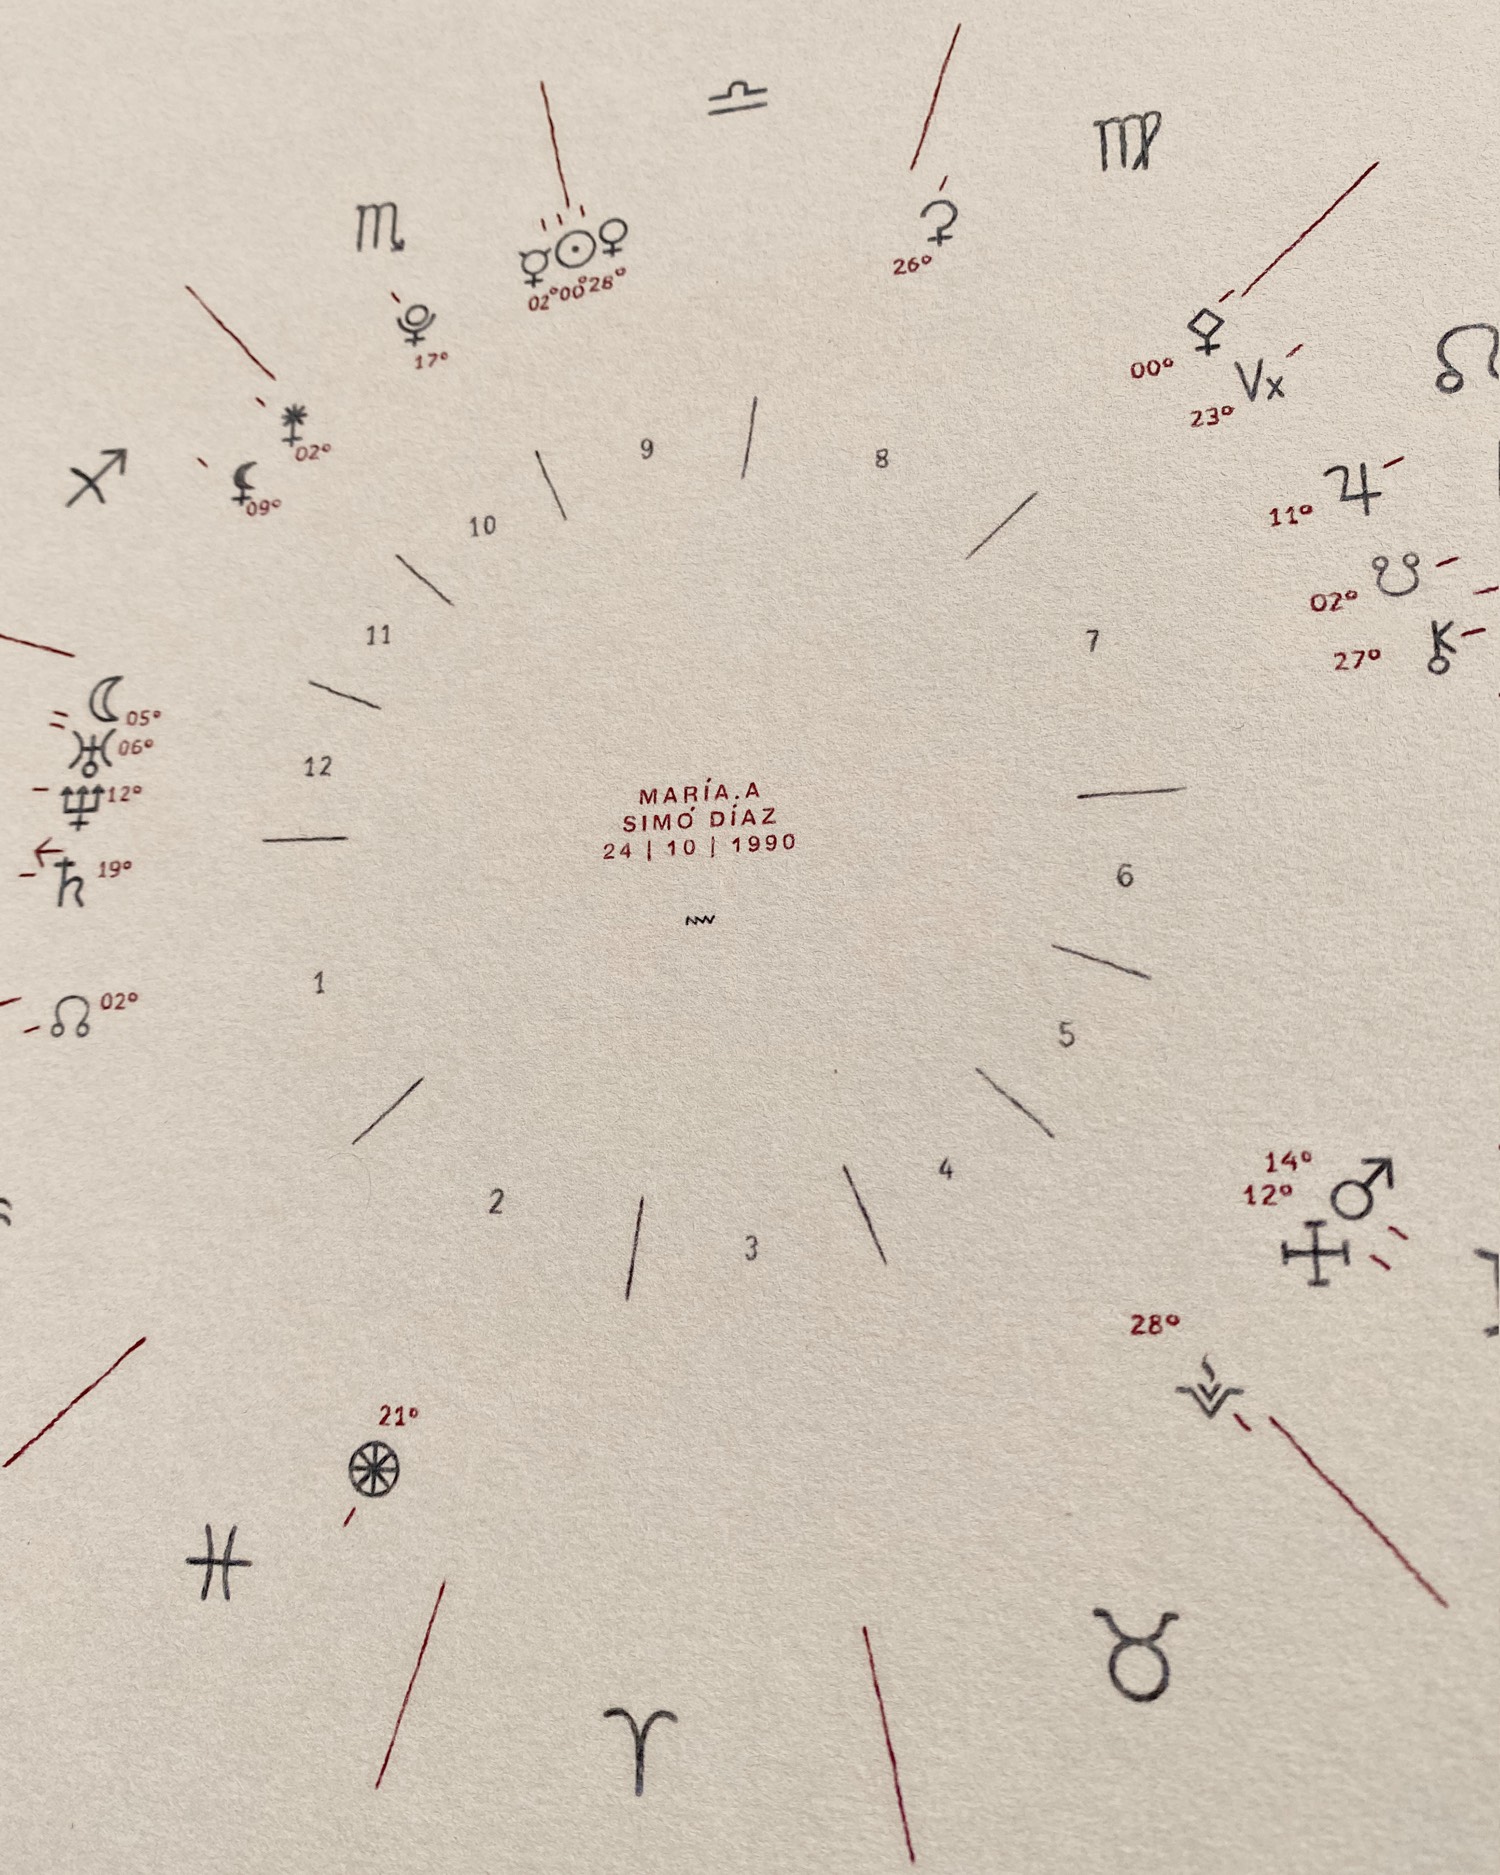 ♎
♍
♏
☿ ☉ ♀
02° 00° 28°
⚳
26°
♇
17°
⚴
00°
Vx
23°
♌
⚵
02°
9
8
♐
⚸
09°
10
♃
11°
☋
02°
11
7
⚷
27°
☽ 05°
♅ 06°
12
♆ 12°
MARÍA.A
SIMÓ DÍAZ
24 | 10 | 1990
♄ 19°
6
1
☊ 02°
5
14°
♂
12°
4
2
3
28°
⚶
21°
♓
♉
♈